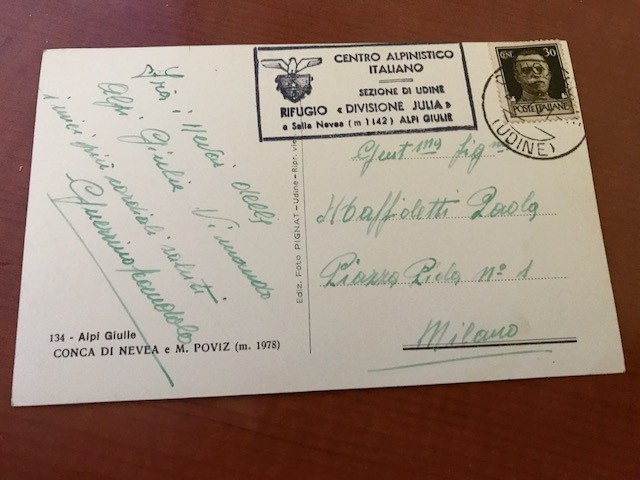 CENTRO ALPINISTICO
ITALIANO
SEZIONE DI UDINE
RIFUGIO «DIVISIONE JULIA»
a Sella Nevea (m 1142) ALPI GIULIE
CENT. 30
POSTE ITALIANE
(UDINE)
Fra i Nevai delle
Alpi Giulie Vi mando
i miei più cordiali saluti
Guerrino
Gent ma Sig na
Maffioletti Paola
Piazza nº 1
Milano
Ediz. Foto PIGNAT - Udine - Ripr. vie
134 - Alpi Giulie
CONCA DI NEVEA e M. POVIZ (m. 1978)